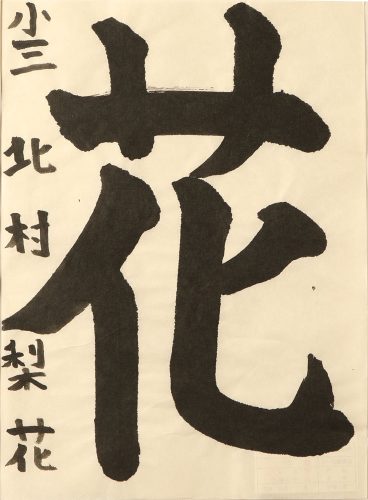 花
小三 北村 梨花